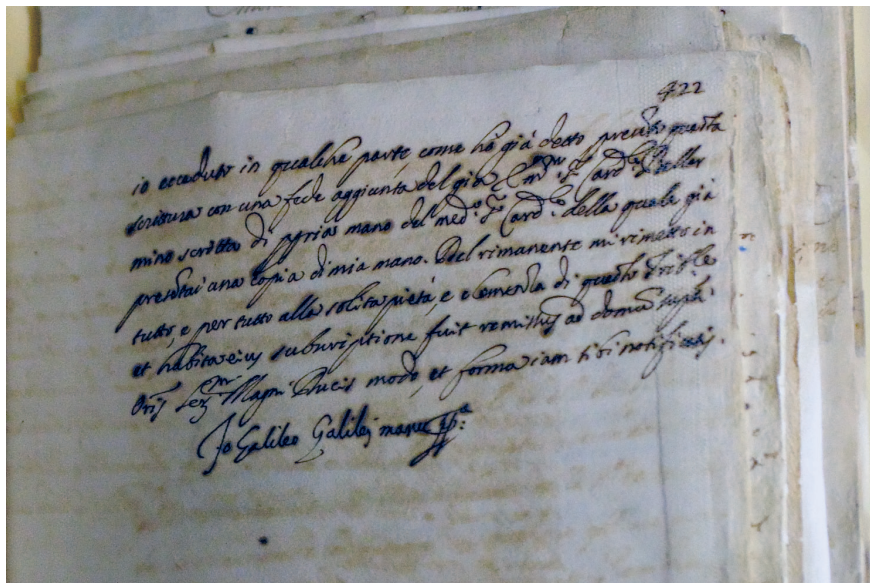 422
io ecceduto in qualche parte, come hò già detto presento questa
scrittura con una fede aggiunta del già Em.mo S.r Card.le Bellar
mino scritta di ppria mano del med.o S.r Card.le della quale già
presentai una copia di mia mano. Del rimanente mi rimetto in
tutto, e per tutto alla solita pietà, e clemenza di questo Trib.le
et habita eius subscriptione fuit remissus ad domum
Oris Ser.mi Magni Ducis modo, et forma iam sibi notificatis.
Io Galileo Galilei manu pp.a